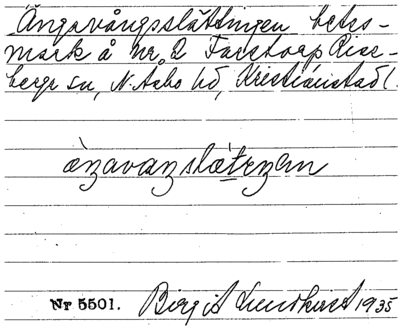 Ängavångsslättingen betes-
mark å nr 2 Farstorp Rise-
berga sn, N. Åsbo hd, Kristianstad l.
Nr 5501. Birgit Lundkvist 1935